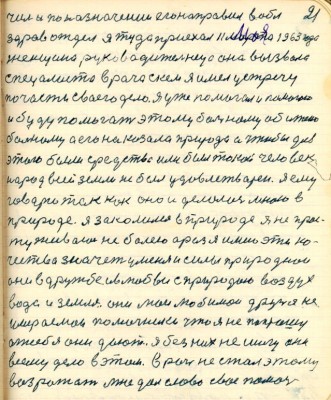 21
чил и по назначении его направил в обл
здрав отдел я туда приехал 11 марта 1963 года
женщина руководителную она вызвала
специалиста врача с кем я имел устречу
по части своего дела. Я уже помогал и помогаю
и буду помогать этому больному обиженно
больному а его наказала природа и чтобы для
этого были средства или был такой человек
народ всей земли не был удовлетварен. Я ему
говарю так как оно и делолось мною в
природе. Я закалился в природе я не про-
стуживаюсь не болею а раз я имею эти ка-
чества значет у меня и силы природной
они в дружбе и любви с природою воздух
вода и земля. они мои любимои друзя не
умераемои помочники что я не попрошу
у себя они дают. я без них не шигу они
всему дело в этом. Врач не стал этому
возражат мне дал слово свое помоч